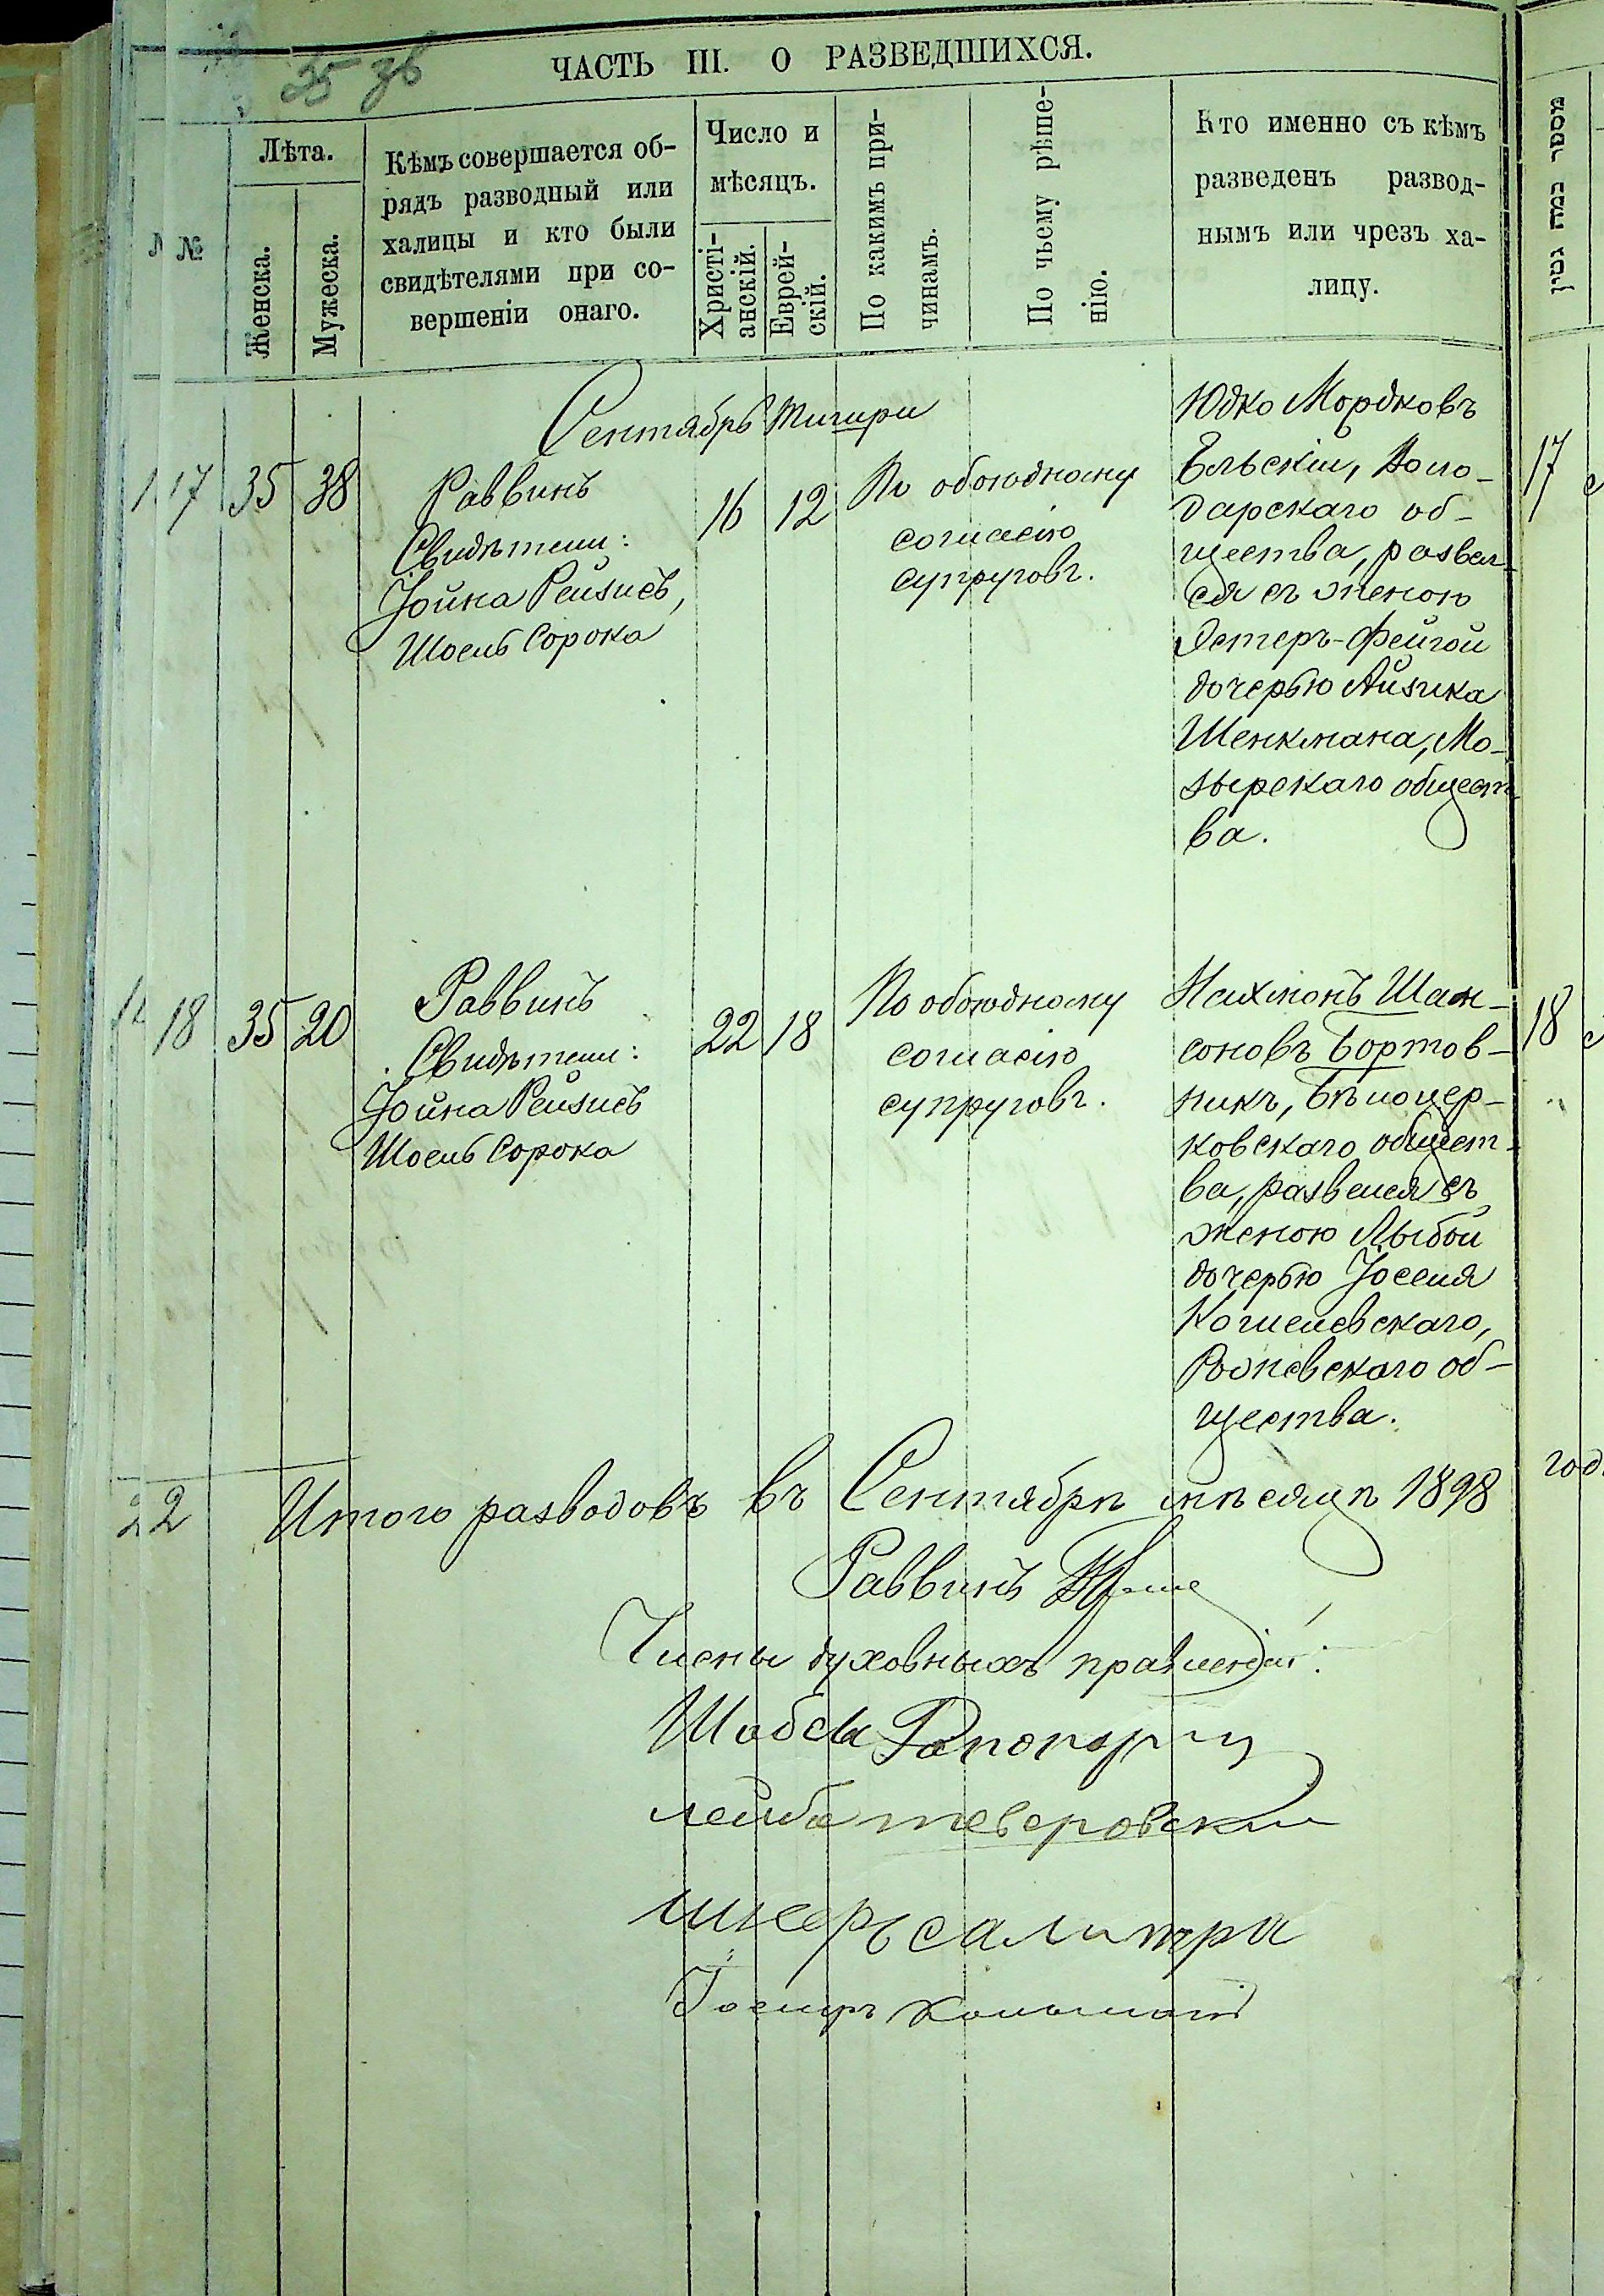 35 36
ЧАСТЬ III. О РАЗВЕДШИХСЯ.
№
Лѣта.
Женска.
Мужеска.
Кѣмъ совершается об-
рядъ разводный или
халицы и кто были
свидѣтелями при со-
вершеніи онаго.
Число и
мѣсяцъ.
Христі-
анскій.
Еврей-
скій.
По какимъ при-
чинамъ.
По чьему рѣше-
нію.
Кто именно съ кѣмъ
разведенъ развод-
нымъ или чрезъ ха-
лицу.
מספר במה גטין
Сентябрь Тишри
17 35 38
Раввинъ
Свидѣтели:
Іойна Рейзисъ,
Шоель Сорока
16 12
По обоюдному
согласію
супруговъ.
Юдко Мордковъ
Ельскій, Воло-
дарскаго об-
щества, развел-
ся съ женою
Эстеръ-Фейгой
дочерью Айзика
Шенкмана, Мо-
зырскаго общест-
ва.
17
18 35 20
Раввинъ
Свидѣтели:
Іойна Рейзисъ
Шоель Сорока
22 18
По обоюдному
согласію
супруговъ.
Нахманъ Шам-
соновъ Бортов-
никъ, Бѣлоцер-
ковскаго общест-
ва, развелся съ
женою Лыбой
дочерью Іоселя
Кошелевскаго,
Рожевскаго об-
щества.
18
2 Итого разводовъ въ Сентябрѣ мѣсяцѣ 1898
год
Раввинъ
Члены духовныхъ правленій:
Шабса Рапопортъ
лейба тверовскій
шнеръ салитра